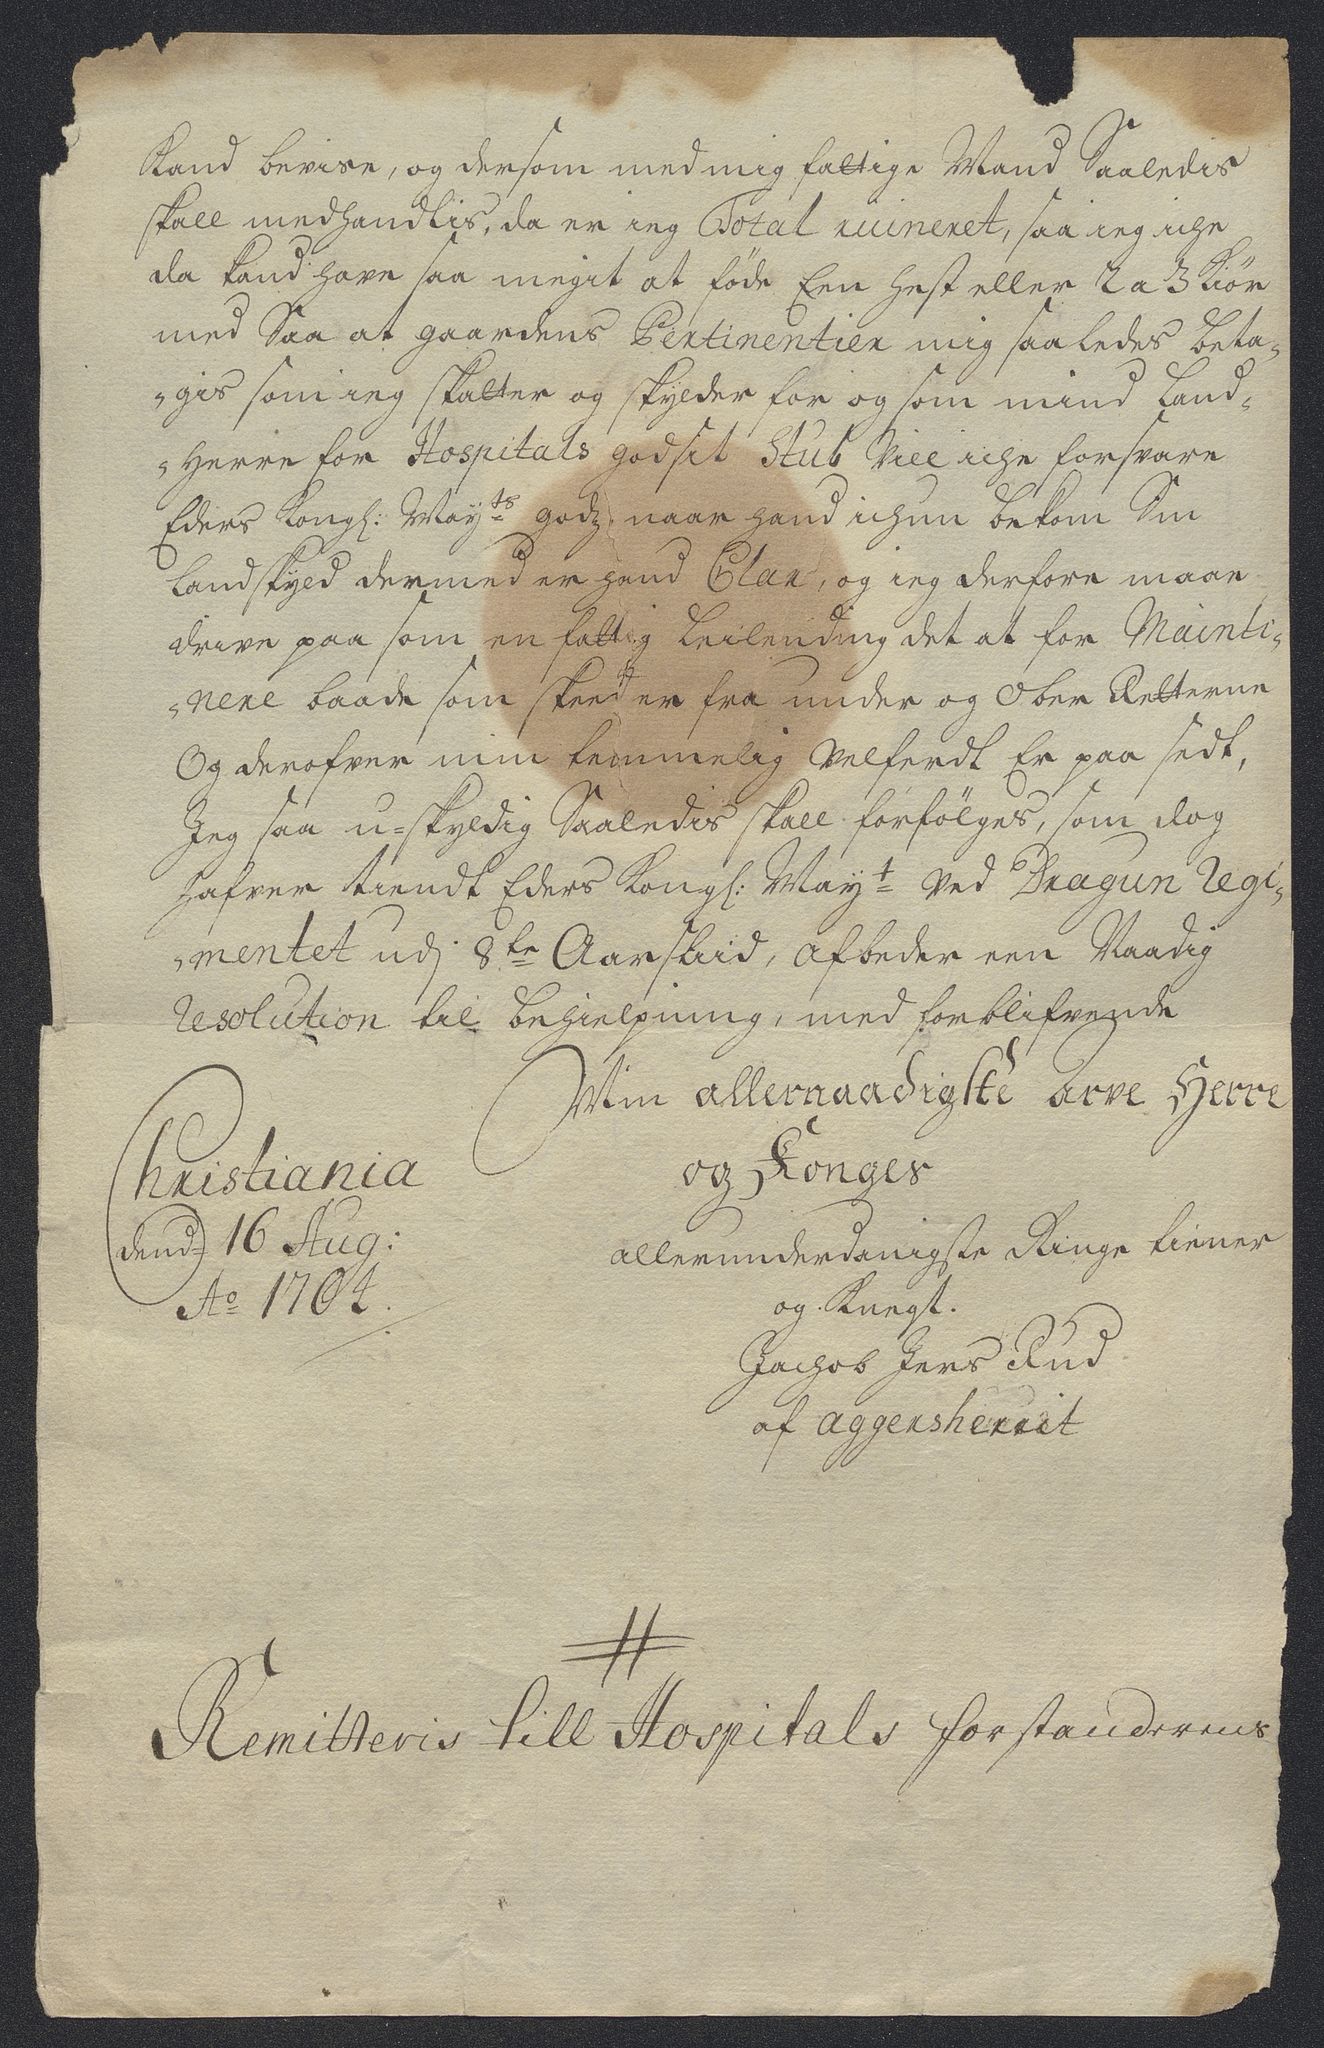 Kand bevise, og dersom med mig fattige Mand Saaledis
skall medhandlis, da er ieg Total ruineret, saa ieg iche
da kand have saa megit at føde Een Hest eller 2 a 3 Kiør
med Saa at gaardens Pertinentier mig saaledes beta-
-gis som ieg skatter og skylder for og som mind Land-
-Herre for Hospitals godsit Stub Vill iche forsvare
Eders Kongl: Mayts godz, naar hand ichun bekom Sin
Landskyld dermed er hand Clar, og ieg derfore maae
drive paa som en fattig Leilending det at for Mainti-
-nere baade som skeed er fra under og Ober Retterne
Og derofver min temmelig Velferdt Er paa sedt,
Jeg saa u-skyldig Saaledis skall forfølges, som dog
hafver tiendt Eders Kongl: Mayt ved Dragun Regi-
-mentet udj 8te Aarstiid, afbeder een Naadig
Resolution til behielpning, med forblifvende
Min allernaadigste arve Herre
og Konges
allerunderdanigste Ringe tiener
og Knegt.
Jachob Jens Rud
af aggersherrit
Christiania
dend 16 Aug:
Ao 1704.
Remitteris till Hospitals forstanderens